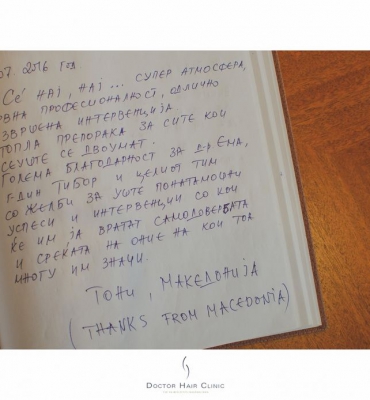 07. 2016 ГОД.
СЀ НАЈ, НАЈ ... СУПЕР АТМОСФЕРА,
РВНА ПРОФЕСИОНАЛНОСТ, ОДЛИЧНО
ЗВРШЕНА ИНТЕРВЕНЦИЈА.
ТОПЛА ПРЕПОРАКА ЗА СИТЕ КОИ
СЕУШТЕ СЕ ДВОУМАТ.
ГОЛЕМА БЛАГОДАРНОСТ ЗА Д-Р ЕМА,
Г-ДИН ТИБОР И ЦЕЛИОТ ТИМ
СО ЖЕЛБИ ЗА УШТЕ ПОНАТАМОШНИ
УСПЕСИ И ИНТЕРВЕНЦИИ СО КОИ
ЌЕ ИМ ЈА ВРАТАТ САМОДОВЕРБАТА
И СРЕЌАТА НА ОНИЕ НА КОИ ТОА
МНОГУ ИМ ЗНАЧИ.
ТОНИ, МАКЕДОНИЈА
(THANKS FROM MACEDONIA)
DOCTOR HAIR CLINIC